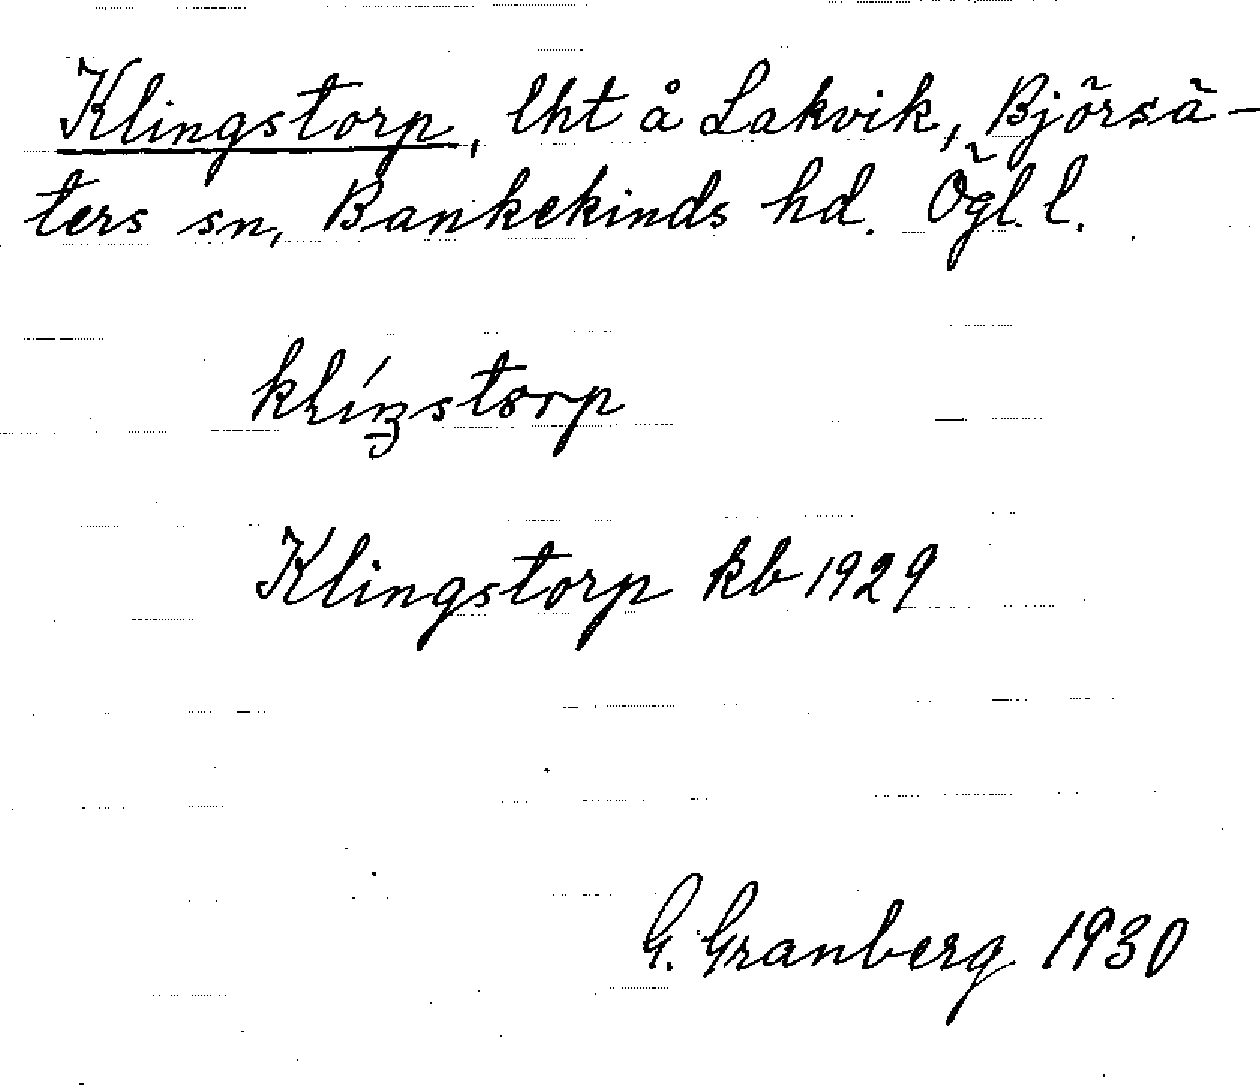 Klingstorp, lht å Lakvik, Björsä-
ters sn, Bankekinds hd. Ögl. l.
Klingstorp kb 1929
G. Granberg 1930